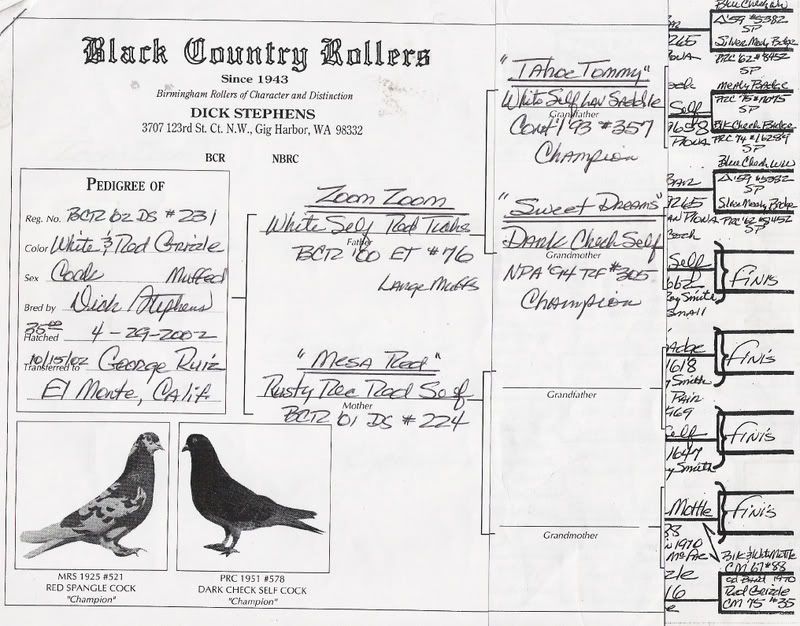 Black Country Rollers
Since 1943
Birmingham Rollers of Character and Distinction
DICK STEPHENS
3707 123rd St. Ct. N.W., Gig Harbor, WA 98332
BCR NBRC
PEDIGREE OF
Reg. No. BCR '02 DS #231
Color White & Red Grizzle
Sex Cock Muffed
Bred by Dick Stephens
Hatched 4-29-2002
10/15/02
Transferred to George Ruiz
El Monte, Calif.
MRS 1925 #521
RED SPANGLE COCK
"Champion"
PRC 1951 #578
DARK CHECK SELF COCK
"Champion"
Zoom Zoom
White Self Red Ticks
Father
BCR '00 ET #76
Large Muffs
"Mesa Red"
Rusty Rec Red Self
Mother
BCR '01 DS #224
"Tahoe Tommy"
White Self Lav Saddle
Grandfather
'93 #357
Champion
"Sweet Dreams"
Dark Check Self
Grandmother
NPA '94 RF #305
Champion
Grandfather
Grandmother
Blue Check WW
'59 #5382
SP
Silver Mealy Bridge
PRC '62 #8452
SP
Mealy Bridge
PRC '75 #11075
SP
Blk Check Bridge
PRC '74 #16289
SP
Blue Check WW
'59 #5382
SP
Silver Mealy Bridge
PRC '62 #8452
SP
Self
Finis
Smith
Small
1618
Smith
Finis
Pair
969
Self
Finis
1647
Smith
Mottle
Finis
1970
Blk & White Mottle
CM '67 #88
1970
Red Grizzle
CM '75 #35